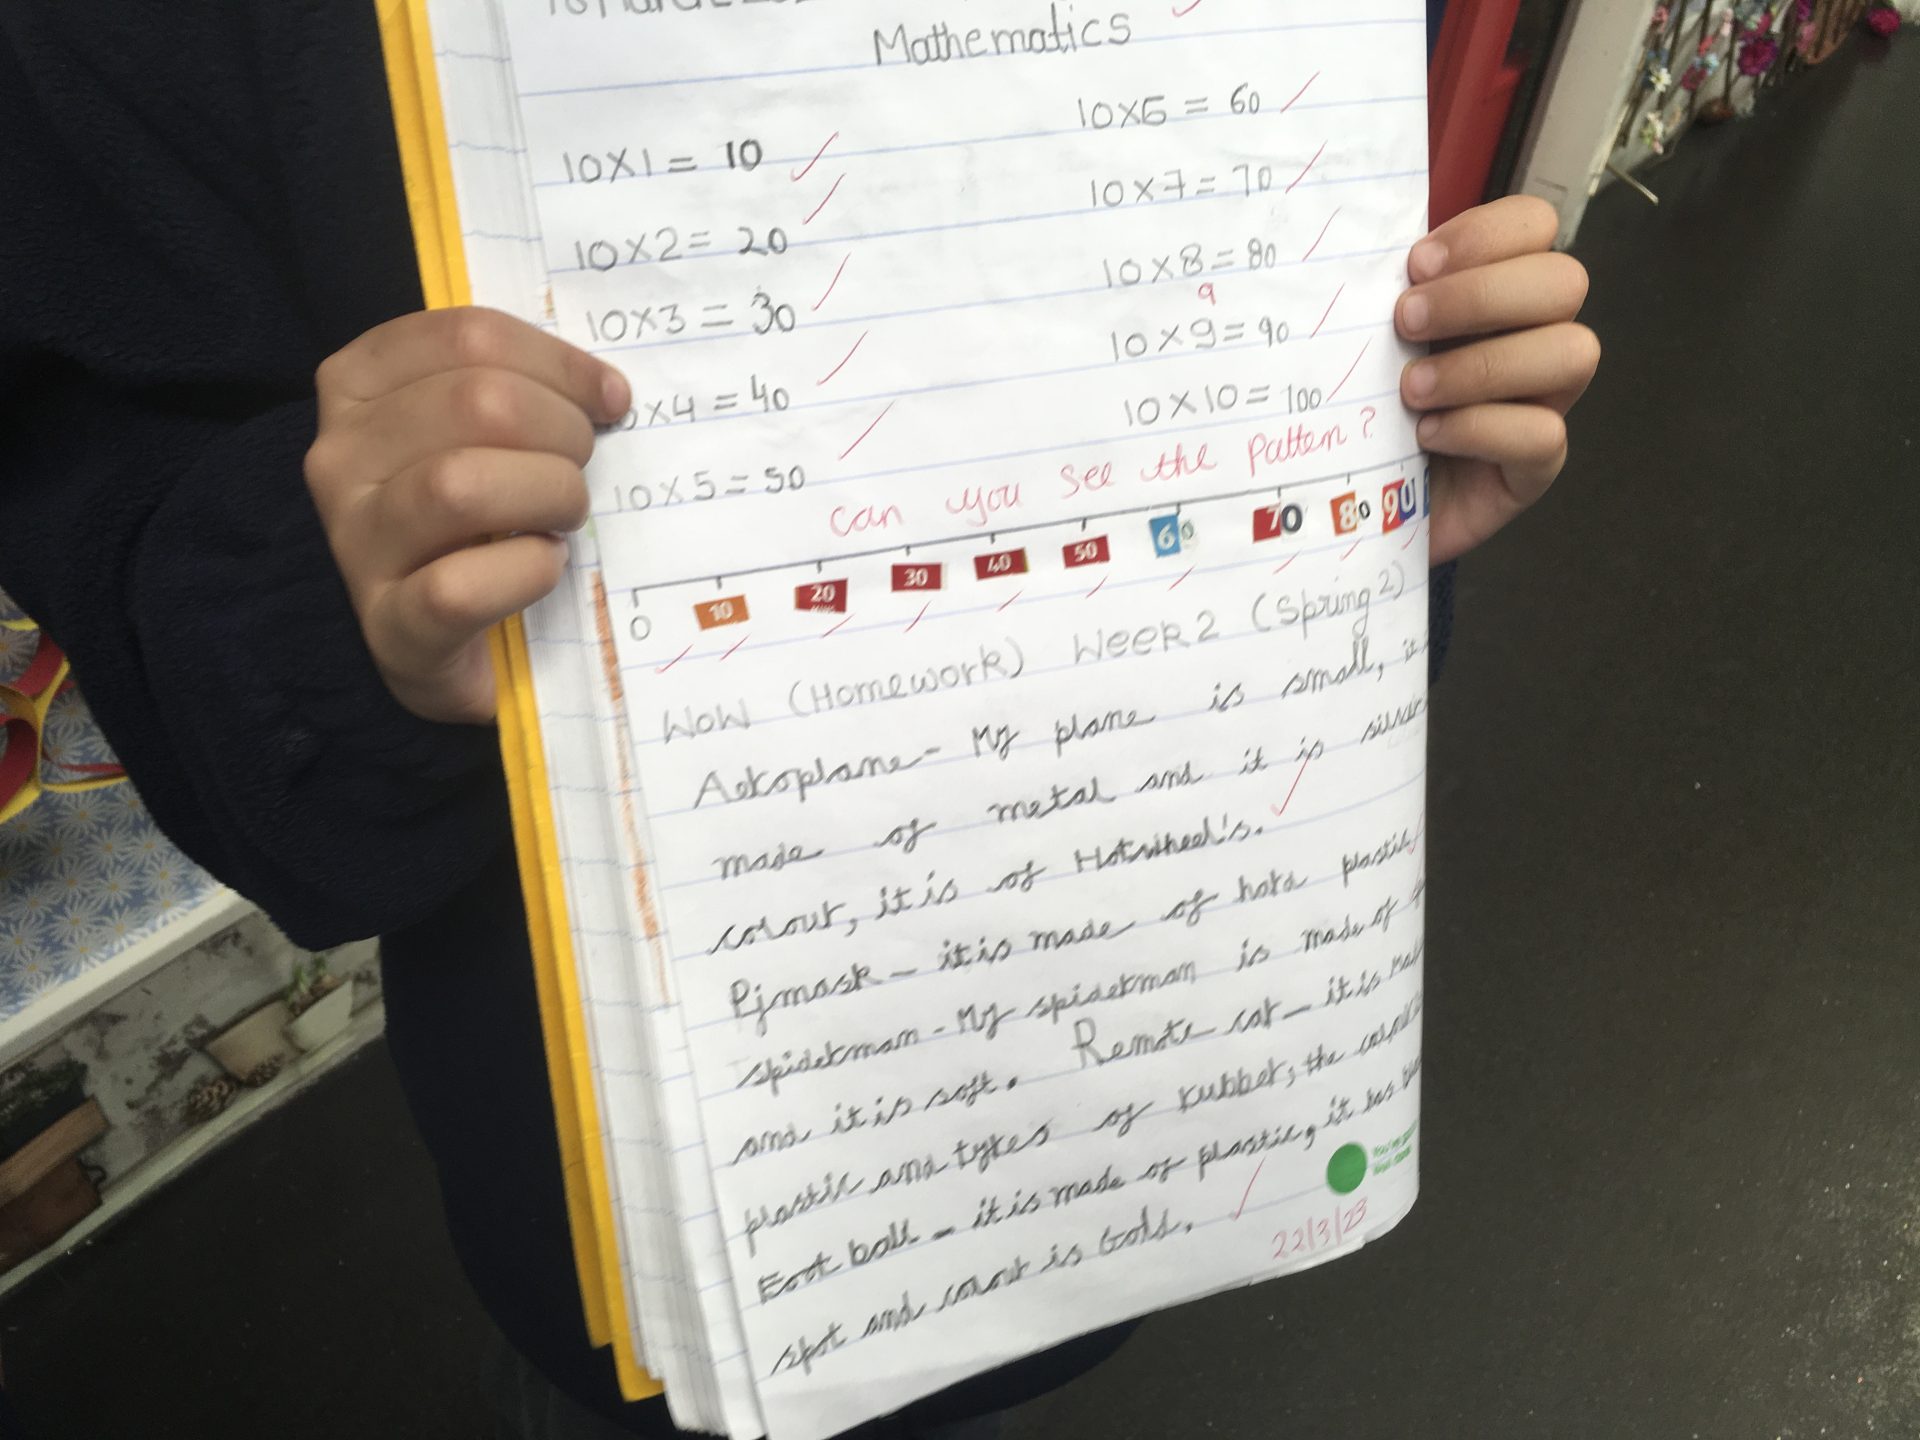 Mathematics
10x1 = 10
10x2 = 20
10x3 = 30
x4 = 40
10x5 = 50
10x6 = 60
10x7 = 70
10x8 = 80
9
10x9 = 90
10x10 = 100
can you see the pattern?
0 10 20 30 40 50 60 70 80 90
WOW (Homework) Week 2 (Spring 2)
Aeroplane - My plane is small, it
made of metal and it is
colour, it is of Hotwheel's.
Pjmask - it is made of hard plastic
spiderman - My spiderman is made of
and it is soft. Remote car - it is
plastic and tyres of rubber, the
Foot ball - it is made of plastic, it has
spot and colour is Gold.
22/3/23